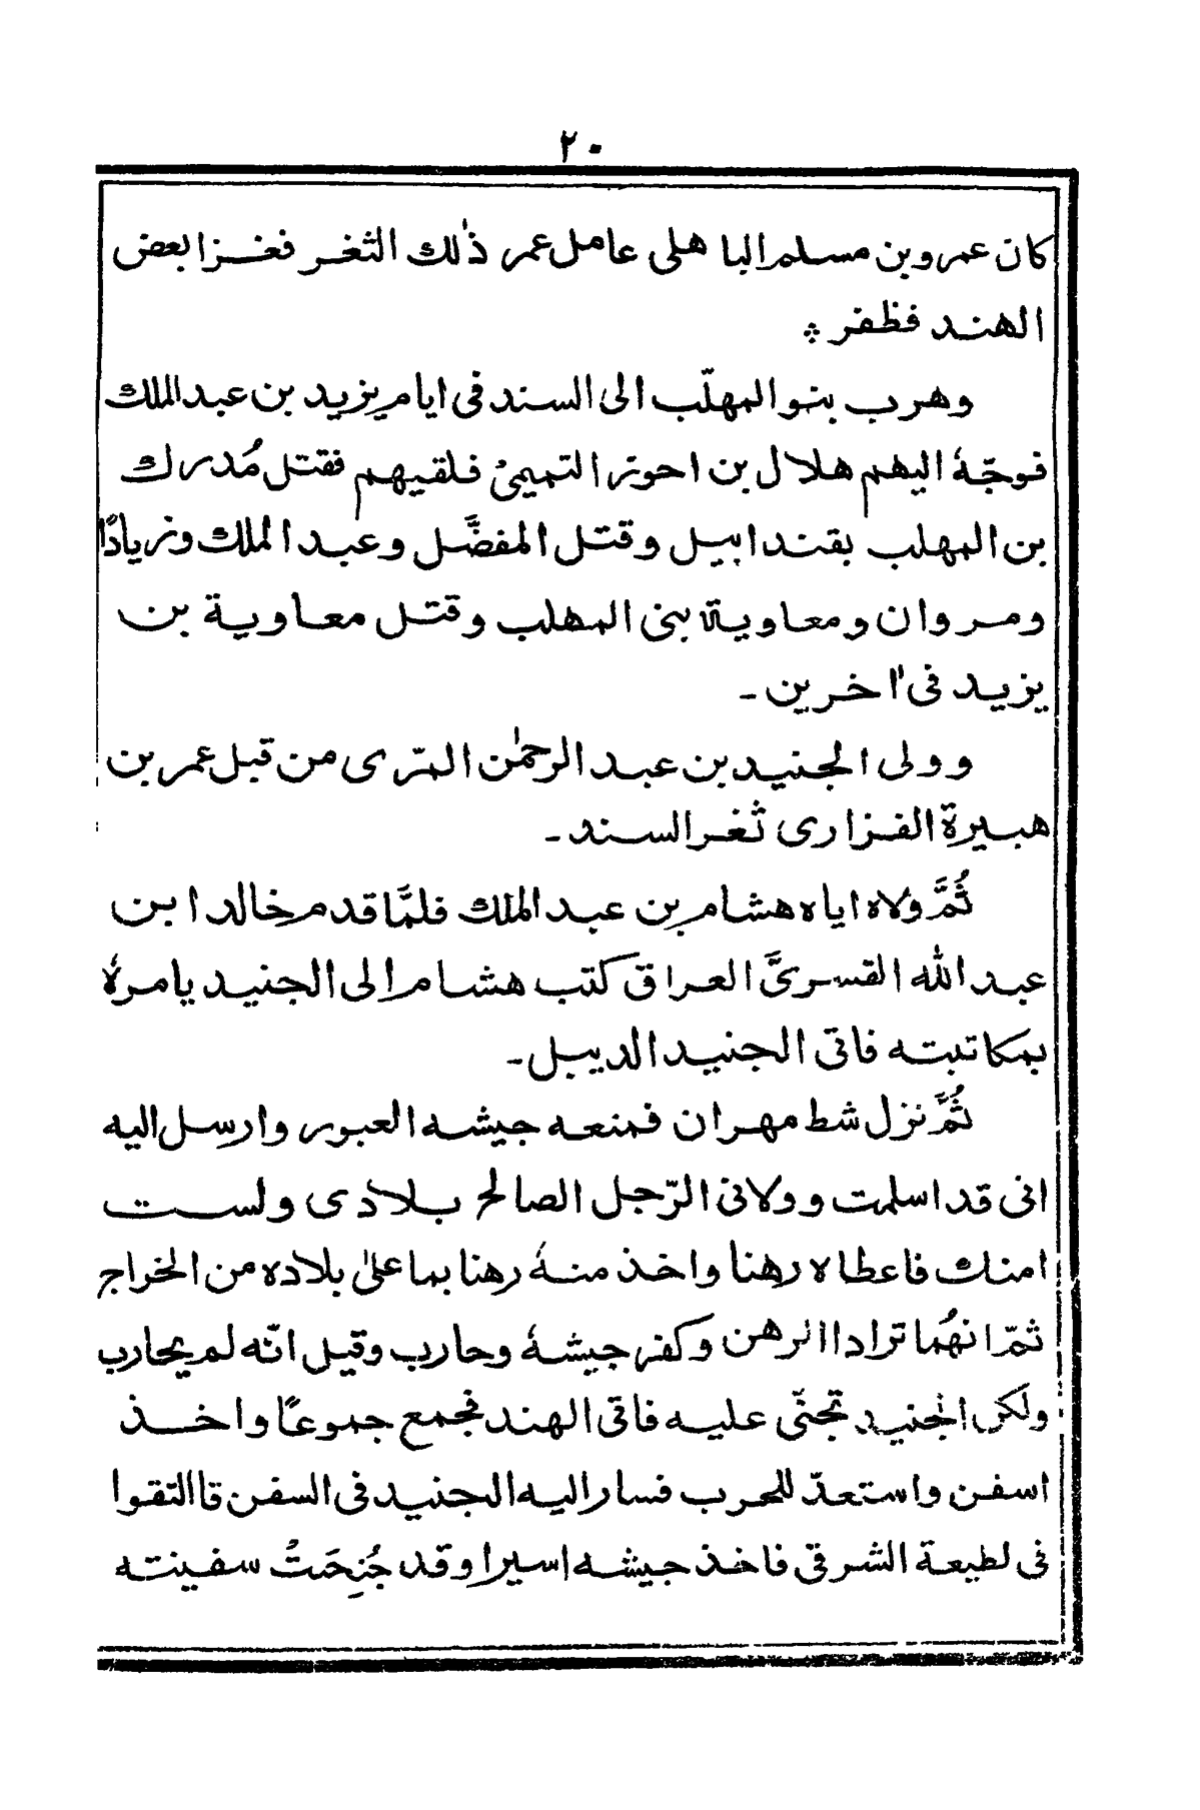 ٢٠
كان عمرو بن مسلم الباهلى عامل عمر ذٰلك الثغر فغزا بعض
الهند فظفر ؞
وهرب بنو المهلّب الى السند فى ايام يزيد بن عبد الملك
فوجّهٗ اليهم هلال بن احوز التميمىُ فلقيهم فقتل مُدرك
بن المهلب بقندابيل وقتل المفضَّل وعبد الملك وزيادًا
ومروان ومعاوية بنى المهلب وقتل معاوية بن
يزيد فى اٰخرين ـ
وولى الجنيد بن عبد الرحمٰن المرّى من قبل عمر بن
هبيرة الفزارى ثغر السند ـ
ثُمَّ ولاه اياه هشام بن عبد الملك فلمَّا قدم خالد ابن
عبد اللّٰه القسرىَّ العراق كتب هشام الى الجنيد يامرهٗ
بمكاتبته فاتى الجنيد الديبل ـ
ثُمَّ نزل شط مهران فمنعه جيشه العبور وارسل اليه
انى قد اسلمت وولانى الرّجل الصالح بلادى ولست
امنك فاعطاه رهنا واخذ منهٗ رهنا بما علىٰ بلاده من الخراج
ثمّ انهُما ترادا الرهن وكفر جيشهٗ وحارب وقيل انّه لم يحارب
ولَكن الجنيد تجنّى عليه فاتى الهند فجمع جموعًا واخذ
اسفن واستعدّ للحرب فسار اليه الجنيد فى السفن قاالتقوا
فى لطيعة الشرقى فاخذ جيشه اسيرا وقد جُنِحَتُ سفينته